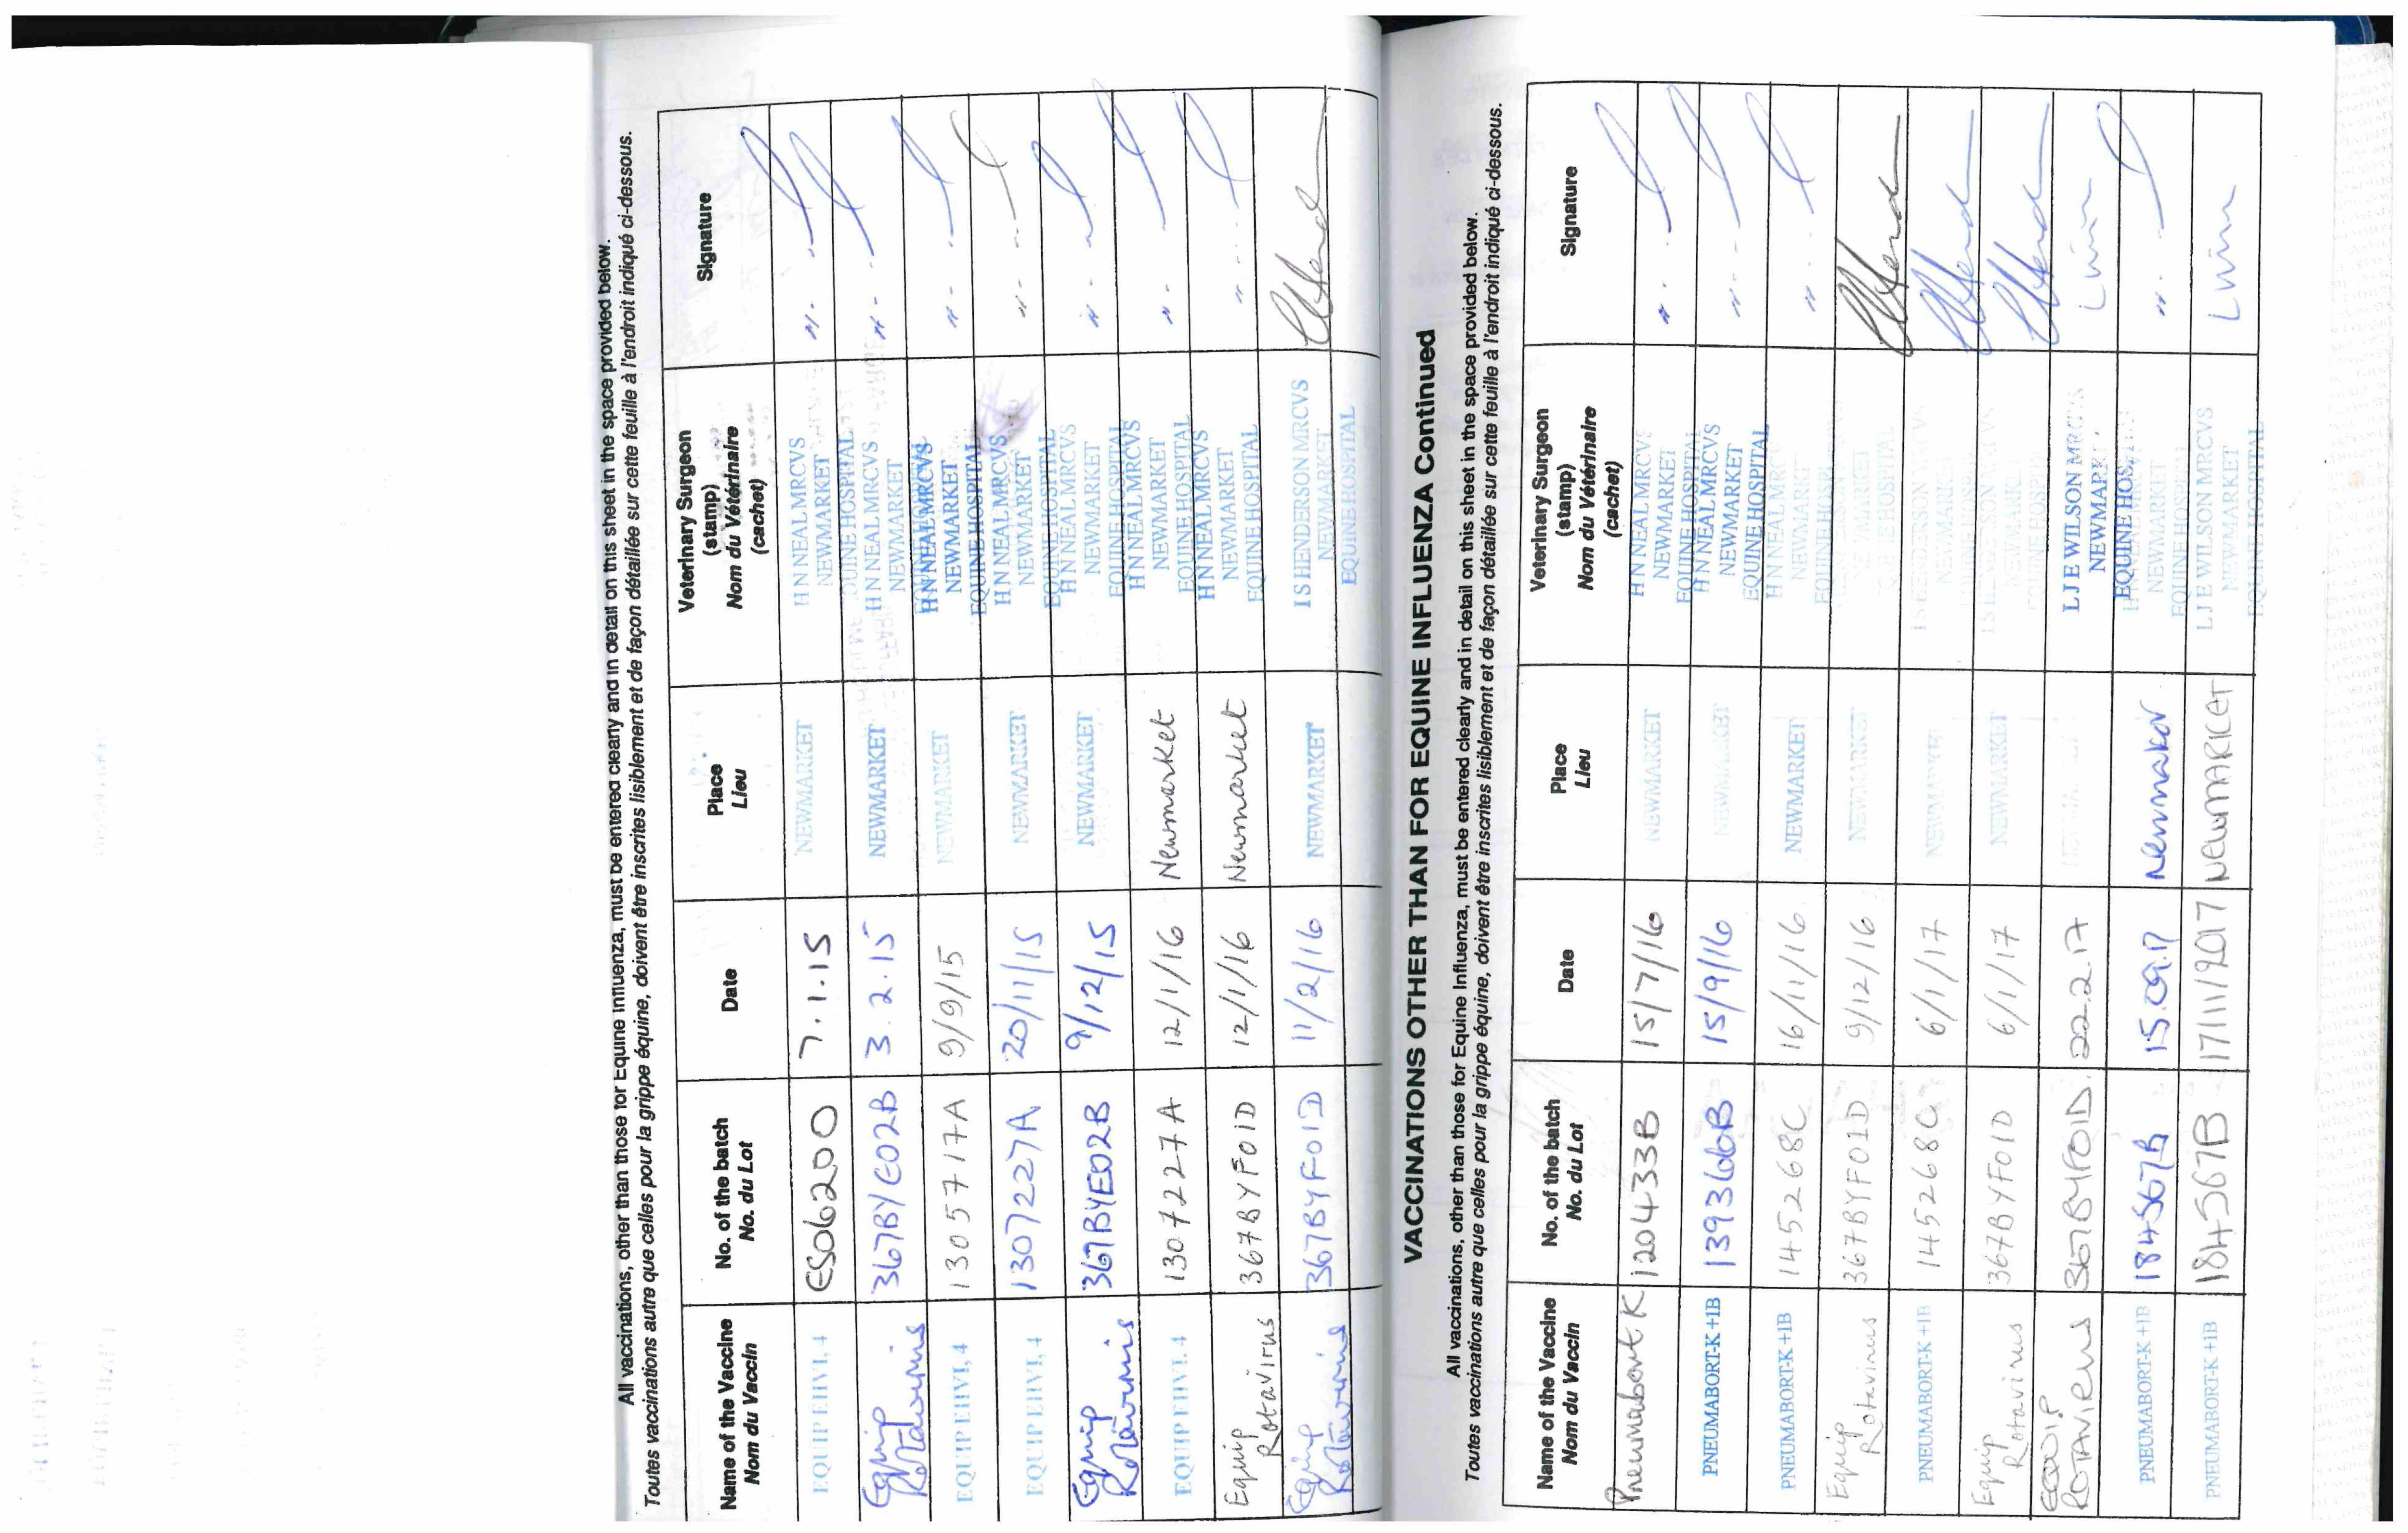 All vaccinations, other than those for Equine Influenza, must be entered clearly and in detail on this sheet in the space provided below.
Toutes vaccinations autre que celles pour la grippe équine, doivent être inscrites lisiblement et de façon détaillée sur cette feuille à l'endroit indiqué ci-dessous.
Name of the Vaccine No. of the batch Date Place Veterinary Surgeon Signature
Nom du Vaccin No. du Lot Lieu (stamp)
Nom du Vétérinaire
(cachet)
EQUIP EHV1,4 ES06200 7.1.15 NEWMARKET H N NEAL MRCVS
NEWMARKET
EQUINE HOSPITAL
Equip Rotavirus 367BYE02B 3.2.15 NEWMARKET H N NEAL MRCVS
NEWMARKET
EQUIP EHV1,4 1305717A 9/9/15 NEWMARKET H N NEAL MRCVS
NEWMARKET
EQUINE HOSPITAL
EQUIP EHV1,4 1307227A 20/11/15 NEWMARKET H N NEAL MRCVS
NEWMARKET
EQUINE HOSPITAL
Equip Rotavirus 367BYE02B 9/12/15 NEWMARKET H N NEAL MRCVS
NEWMARKET
EQUINE HOSPITAL
EQUIP EHV1,4 1307227A 12/1/16 Newmarket H N NEAL MRCVS
NEWMARKET
EQUINE HOSPITAL
Equip Rotavirus 367BYF01D 12/1/16 Newmarket H N NEAL MRCVS
NEWMARKET
EQUINE HOSPITAL
Equip Rotavirus 367BYF01D 11/2/16 NEWMARKET I S HENDERSON MRCVS
NEWMARKET
EQUINE HOSPITAL
VACCINATIONS OTHER THAN FOR EQUINE INFLUENZA Continued
All vaccinations, other than those for Equine Influenza, must be entered clearly and in detail on this sheet in the space provided below.
Toutes vaccinations autre que celles pour la grippe équine, doivent être inscrites lisiblement et de façon détaillée sur cette feuille à l'endroit indiqué ci-dessous.
Name of the Vaccine No. of the batch Date Place Veterinary Surgeon Signature
Nom du Vaccin No. du Lot Lieu (stamp)
Nom du Vétérinaire
(cachet)
Pneumabort K 1204333B 15/7/16 NEWMARKET H N NEAL MRCVS
NEWMARKET
EQUINE HOSPITAL
PNEUMABORT-K +1B 139366B 15/9/16 NEWMARKET H N NEAL MRCVS
NEWMARKET
EQUINE HOSPITAL
PNEUMABORT-K +1B 145268C 16/11/16 NEWMARKET H N NEAL MRCVS
NEWMARKET
EQUINE HOSPITAL
Equip Rotavirus 367BYF01D 9/12/16 NEWMARKET
PNEUMABORT-K +1B 145268C 6/1/17 NEWMARKET
Equip Rotavirus 367BYF01D 6/1/17 NEWMARKET
EQUIP ROTAVIRUS 367BYF01D 22.2.17 L J E WILSON MRCVS
NEWMARKET
EQUINE HOS
PNEUMABORT-K +1B 184567B 15.09.17 Newmarket
NEWMARKET
EQUINE HOSPITAL
PNEUMABORT-K +1B 184567B 17/11/2017 NEWMARKET L J E WILSON MRCVS
NEWMARKET
EQUINE HOSPITAL